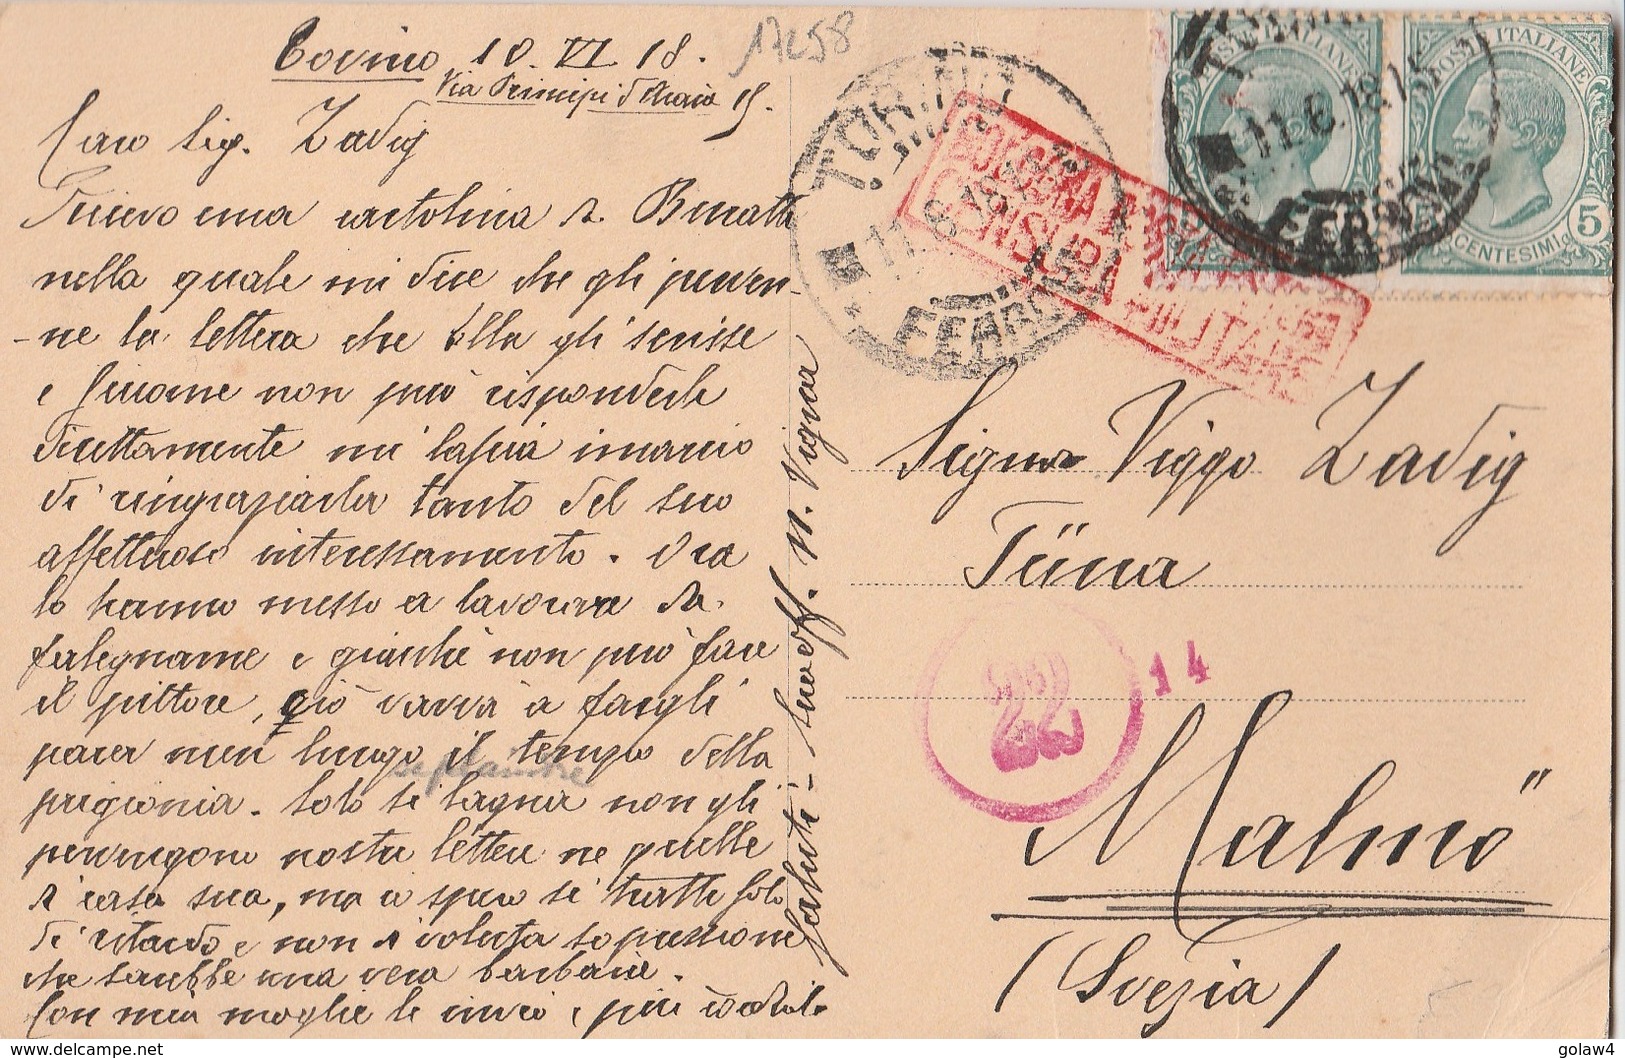 Torino 10. VI. 18.
17258
Via Principi d'Acaia 15.
Caro Sig. Zadig
Ricevo una cartolina di Buratti
nella quale mi dice che gli perven-
-ne la lettera che Ella gli scrisse
e siccome non può risponderle
direttamente mi lascia incarico
di ringraziarla tanto del suo
affettuoso interessamento. Ora
lo hanno messo a lavorare da
falegname e giacchè non può fare
il pittore, ciò varrà a fargli
parer men lungo il tempo della
prigionia. Solo si lagna non gli
pervengono nostre lettere ne quelle
di casa sua, ma io spero si tratti solo
di ritardo e non di voluta soppressione
che sarebbe una vera barbarie.
Con mia moglie le invio i più cordiali
saluti - Suo aff. N. Vigna
TORINO
11.6.18.15
FERROVIA
BOLOGNA POSTA ESTERA
CENSURA MILITARE
POSTE ITALIANE
5 CENTESIMI 5
POSTE ITALIANE
5 CENTESIMI 5
TORINO
11.6.18.15
FERROVIA
Signor Viggo Zadig
Firma
22
14
Malmö
(Svezia)
© delcampe.net
golaw4